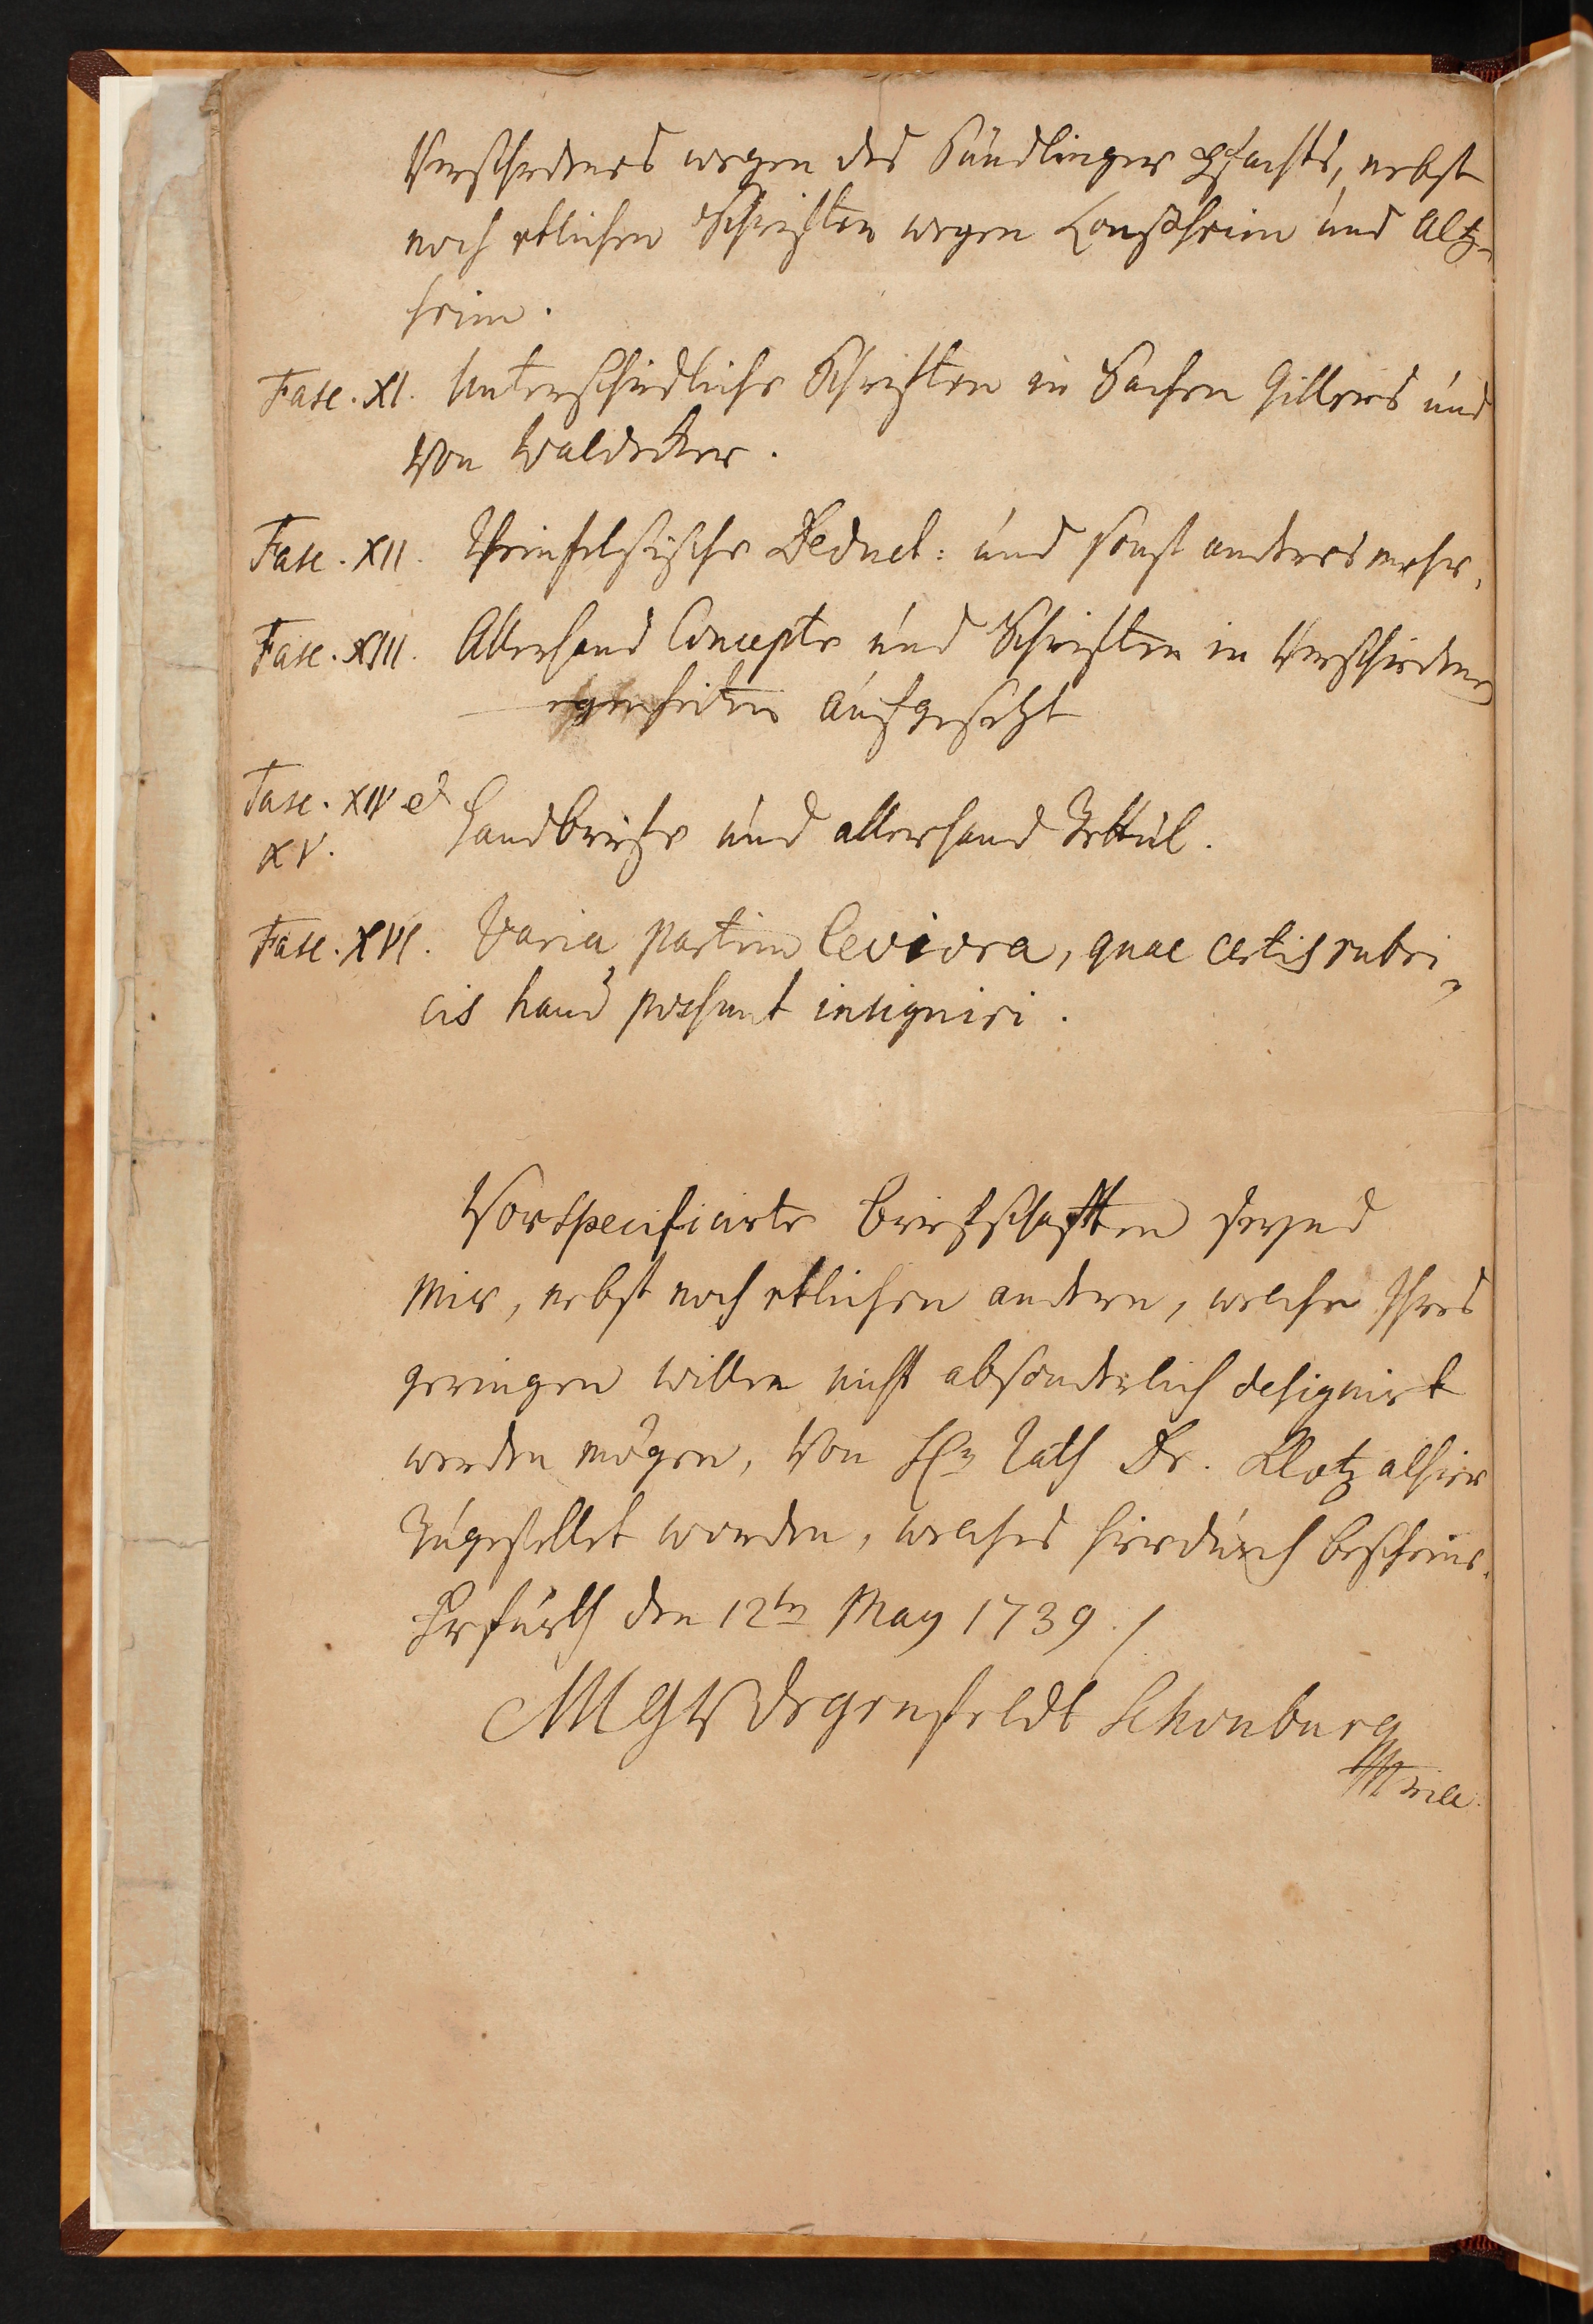 Verschedenes wegen des Sündlinger Pfachts, nebst
noch etlichen Schrifften wegen Lonßheim und Altz-
heim.
Fasc. XI. Unterschiedliche Schrifften in Sachen Hillers und
Von Waldecker.
Fasc. XII. Rheinfelsische Deduct: und sonst anders mehr.
Fasc. XIII. Allerhand Concepte und Schrifften in Verschiedenen
egenheiten aufgesetzt
Fasc. XIV et
XV. Handbriefe und allerhand Zettul.
Fasc. XVI. Varia partim leviora, quae certis rubri-
cis haud possunt insigniri.
Vorspecificirte Briefschafften seynd
mir, nebst noch etlichen andern, welche Ihres
geringen willen nicht absonderlich designirt
werden mögen, Von Hn Rath Dr. Klotz alhier
Zugestellet worden, welches hierdurch bescheine.
Erfurth den 12ten May 1739.
MGV Degenfeldt Schonburg